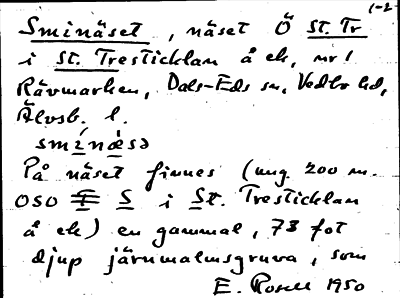 1-2
Sminäset, näset Ö St. Tr
i St. Tresticklan å ek, nr 1
Rävmarken, Dals-Eds sn, Vedbo hd,
Älvsb. l.
smìnǽsə
På näset finnes (ung. 200 m.
OSO S i St. Tresticklan
å ek) en gammal, 73 fot
djup järnmalmsgruva, som
E. Rosell 1950